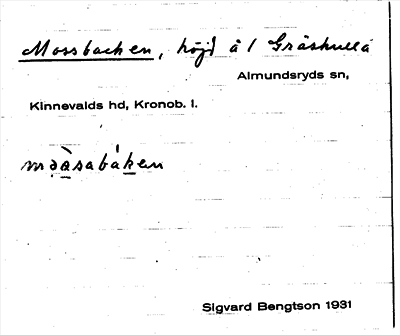 Mossbacken, höjd å 1 Gråshulla
Almundsryds sn,
Kinnevalds hd, Kronob. l.
Sigvard Bengtson 1931